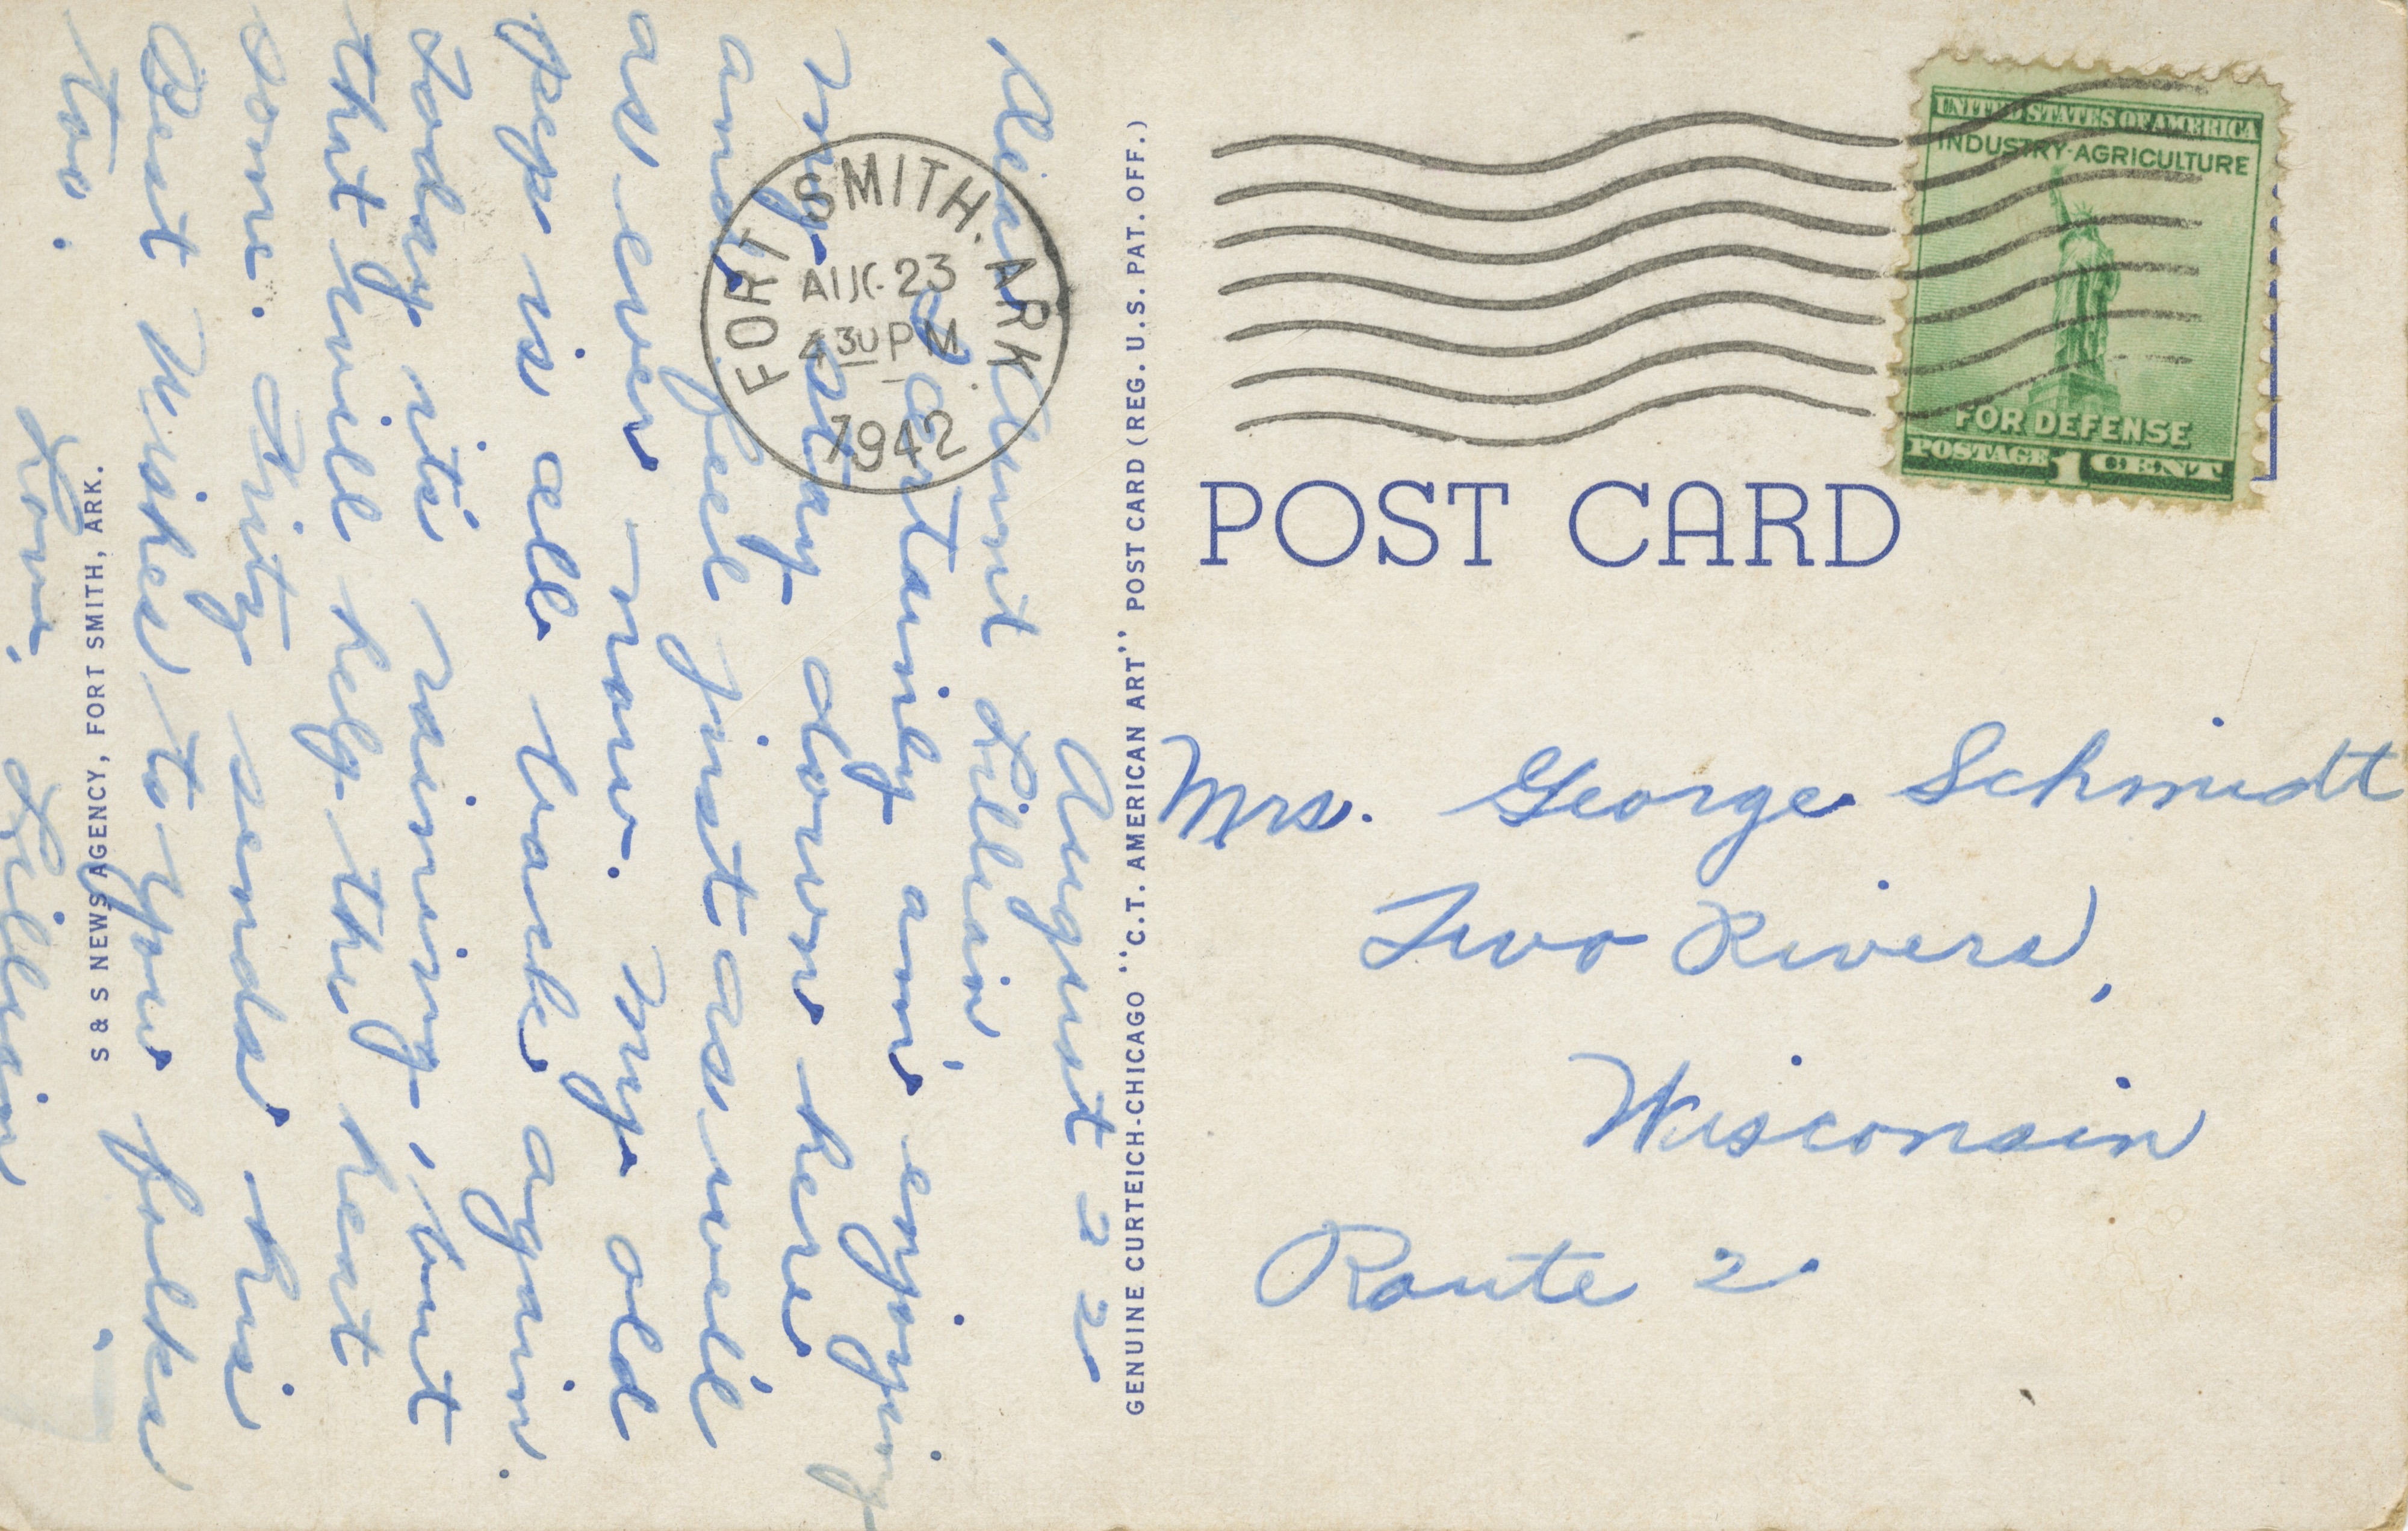 August 22
Dear Aunt Lillian,
I certainly am enjoying
my stay down here
and feel just as well
as ever now. My old
pep is all back again.
Today it's raining, but
that will help the heat
some. Fritz sends his
Best Wishes to you folks
too.
Love,
Lillian
S & S NEWS AGENCY, FORT SMITH, ARK.
GENUINE CURTEICH-CHICAGO "C.T. AMERICAN ART" POST CARD (REG. U.S. PAT. OFF.)
FORT SMITH. ARK
AUG 23
430 PM
1942
UNITED STATES OF AMERICA
INDUSTRY-AGRICULTURE
FOR DEFENSE
POSTAGE 1 CENT
POST CARD
Mrs. George Schmidt
Two Rivers,
Wisconsin
Route 2